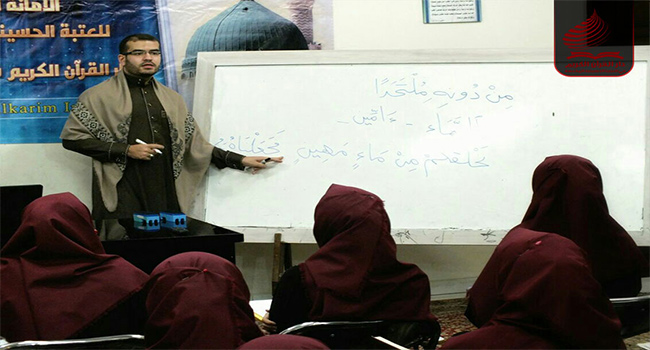 الأمانة
للعتبة الحسيني
القرآن الكريم
lkarim I
مِنْ دُونِهِ مُلْتَحَدًا
ءَامِّينَ -
نَخْلُقكُّمْ مِنْ مَاءٍ مَهِينٍ فَجَعَلْنَاهُ